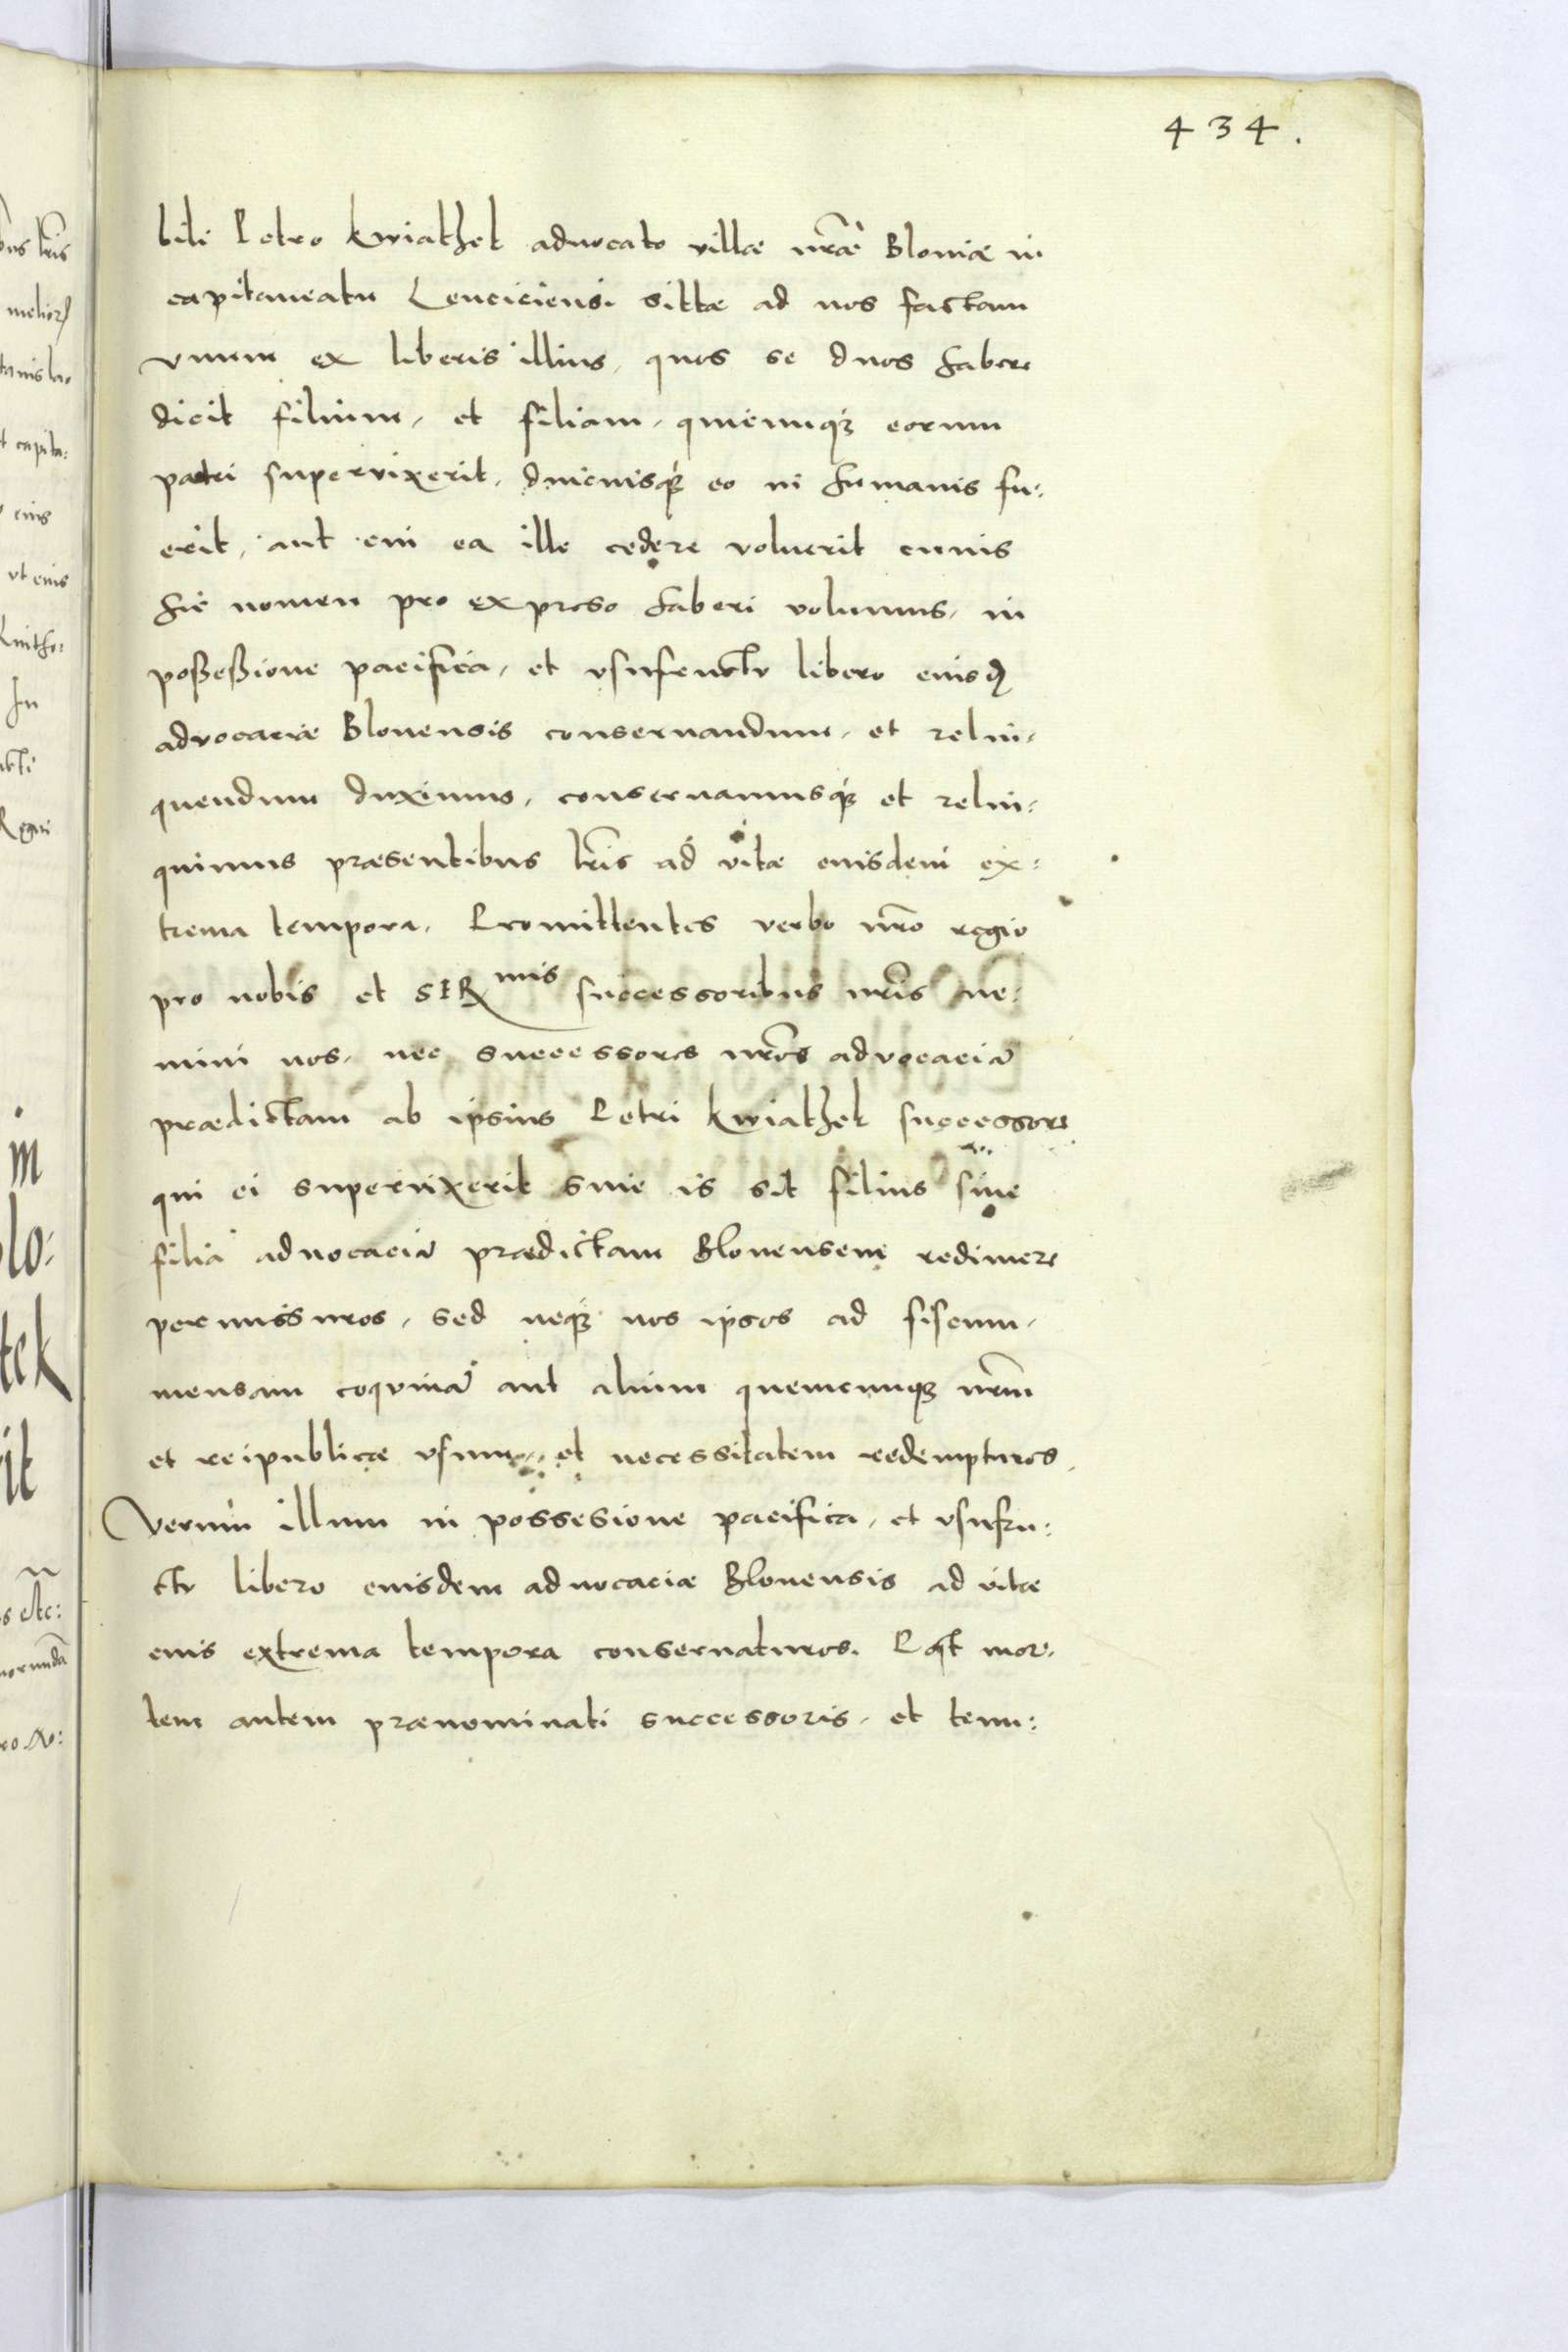 434.
bili Petro Kwiathek aduocato villæ nr̃æ Bloniæ in
capitaneatu Lenciciensi sittæ ad nos factam
vnum ex liberis illius, quos se duos habere
dicit filium, et filiam, quicunqz eorum
patri supervixerit, duienisqz eo in humanis fu:
erit, aut cui ea ille cedere voluerit cuius
hic nomen pro expreso haberi volumus, in
poßeßione pacifica, et vsufructu libero eiusd
advocaciæ Blonensis conseruandum, et relin-
quendum duximus, conseruamusqz et relin:
quimus præsentibus lr̃is ad vitæ eiusdem ex:
trema tempora. Promittentes verbo nr̃o regio
pro nobis et SERmis successoribus nr̃is ne:
mini nos, nec successores nr̃os advocaciã
prædictam ab ipsius Petri Kwiathek successore
qui ei supervixerit siue is sit filius siue
filia aduocaciã prædictam Blonensem redimere
permissuros, sed neqz nos ipsos ad fiscum,
mensam coquinã aut alium quemcunqz nr̃m
et reipublicæ vsum, et necessitatem redempturos,
Verum illum in possesione pacifica, et vsufru:
ctu libero eiusdem aduocaciæ Blonensis ad vitæ
eius extrema tempora conseruaturos. Post mor:
tem autem prænominati successoris, et tenu: